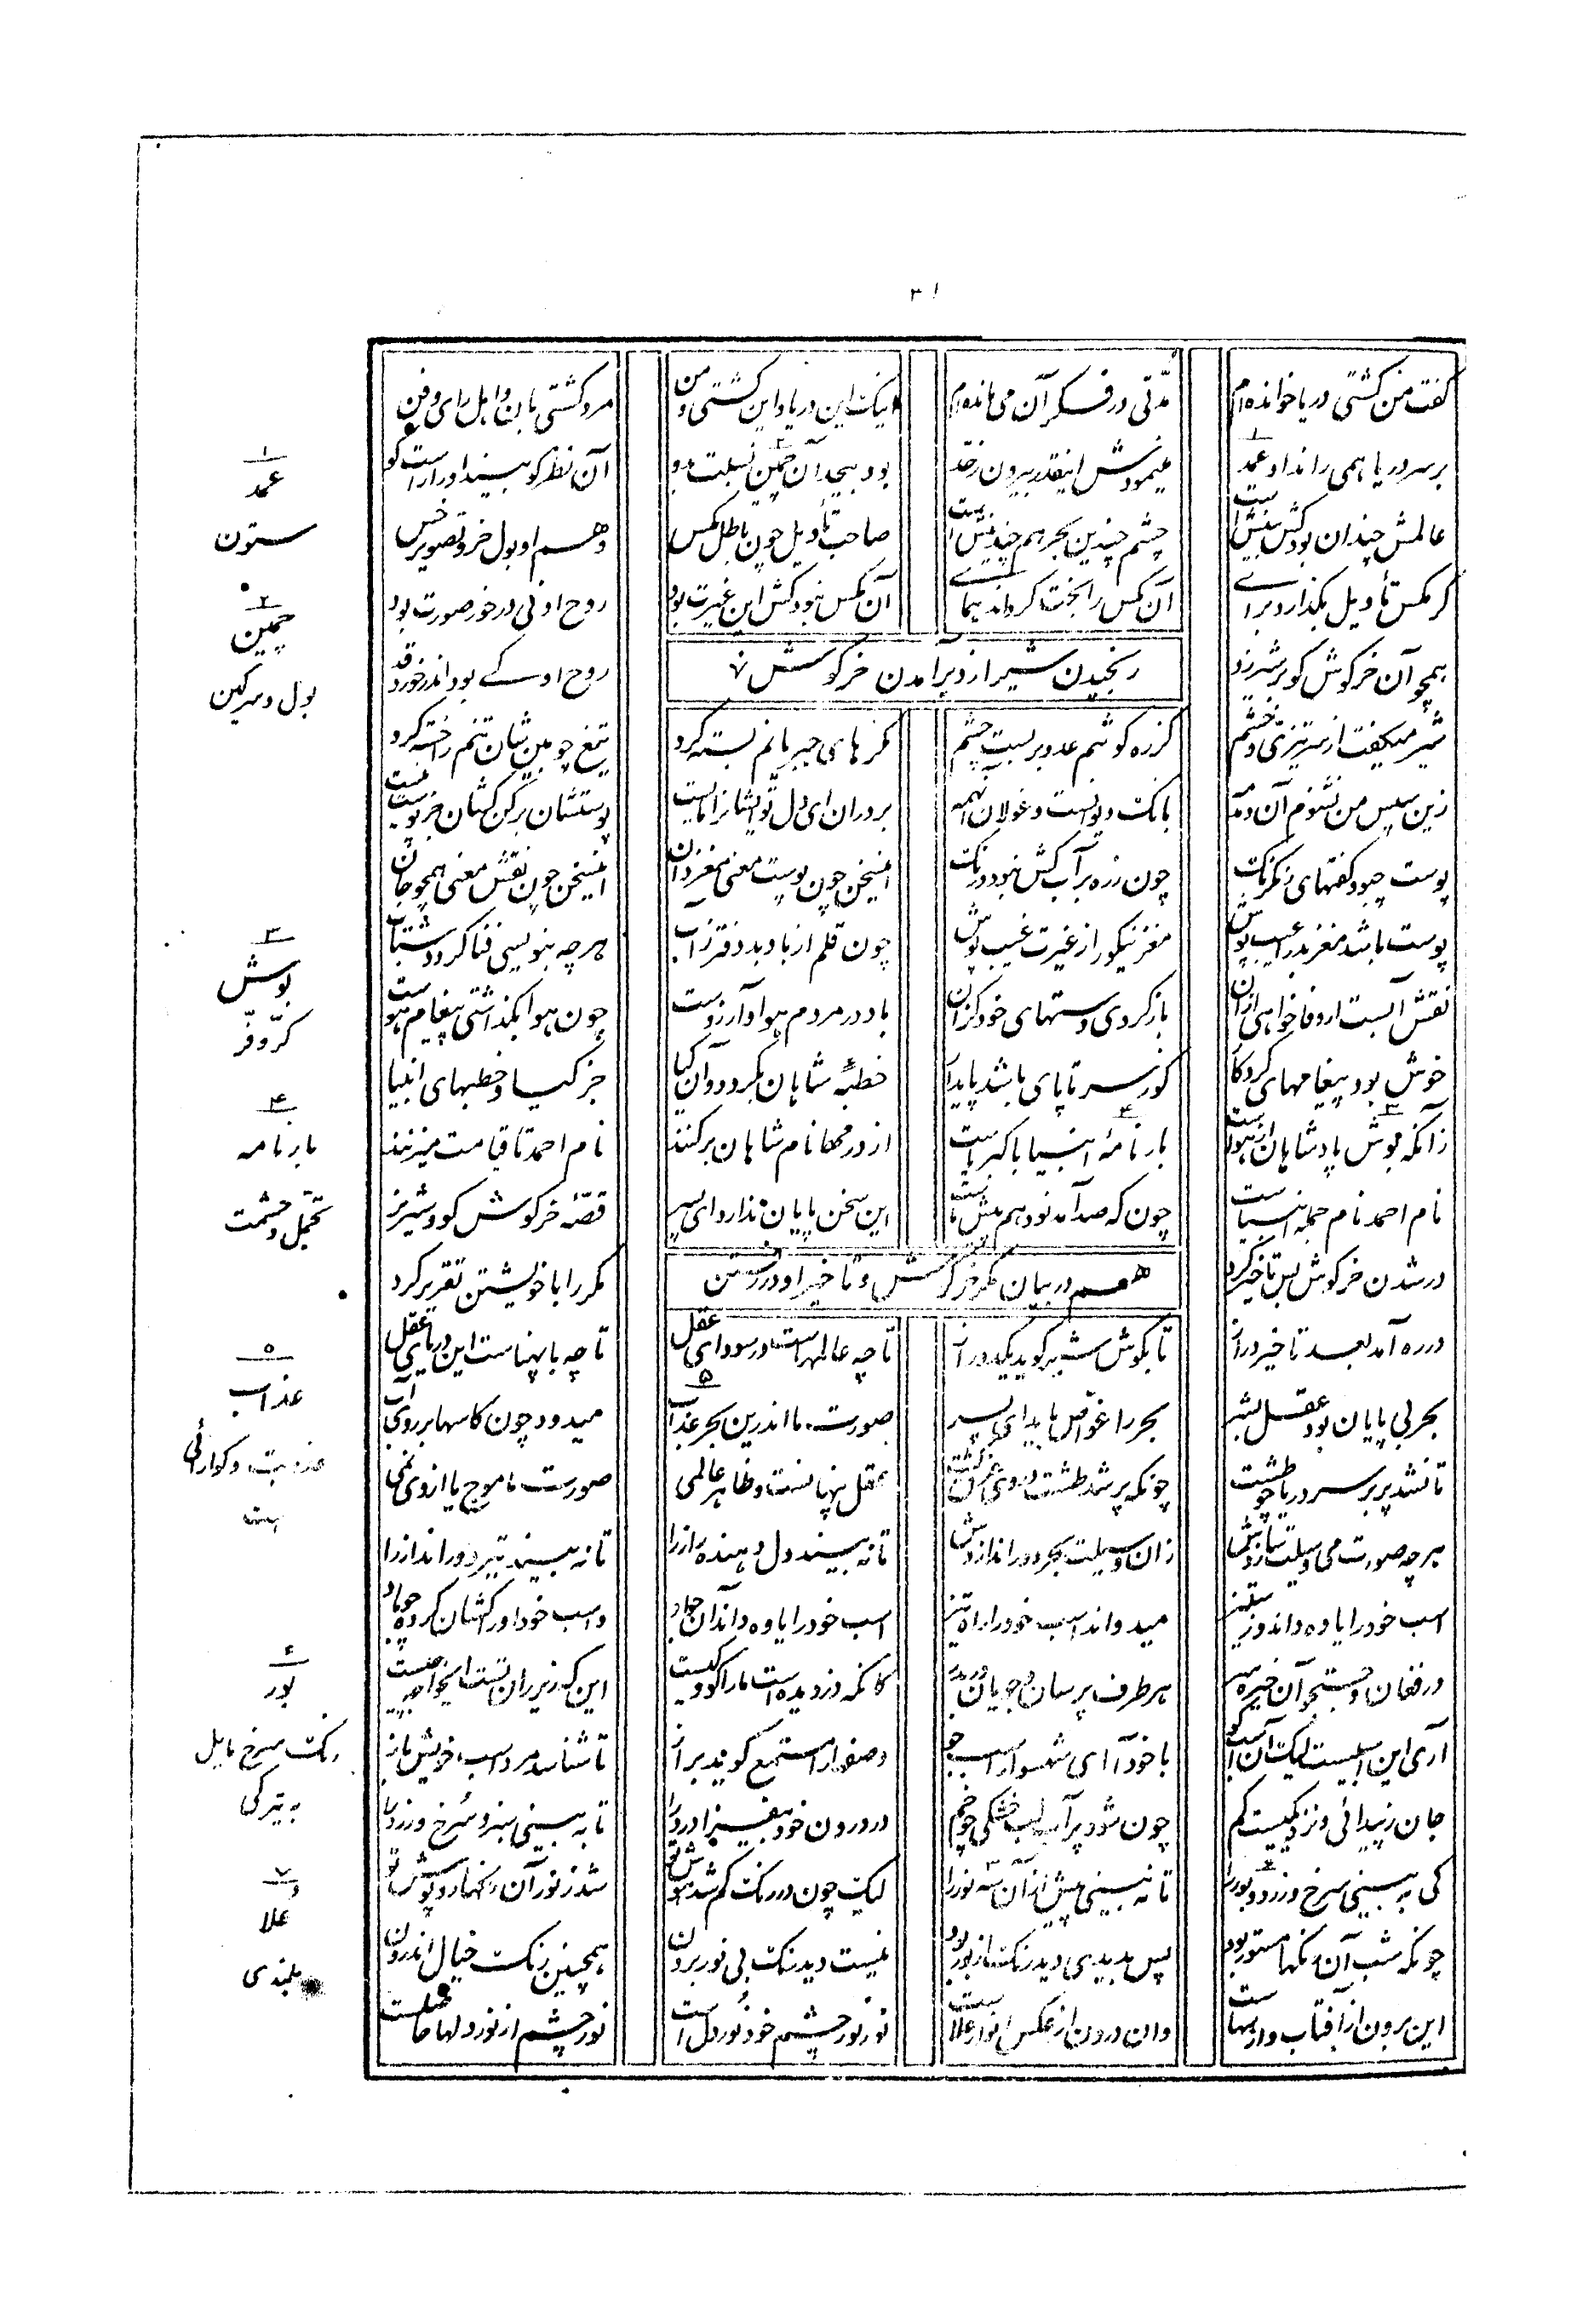 ۳۱
گفت من کشتی و دریا خوانده‌ام مدّتی در فکر آن می مانده‌ام اینک این دریا و این کشتی و من مرد کشتی بان و اهل رای و فن
بر سر دریا همی راند او عمد می‌نمودش اینقدر بیرون ز حد بود بیحد آن چمین نسبت بدو آن نظر کو بیند او را راست کو
عالمش چندان بود کش بینش است چشم چندین بحر هم چندینش است صاحب تأویل چون باطل مگس وهم او بول خر و تصویر خس
گر مگس تأویل بگذارد برای آن مگس را بخت گرداند همای آن مگس نبود کش این غیرت بود روح او نی در خور صورت بود
رنجیدن شیر از دیر آمدن خرگوش
همچو آن خرگوش کو بر شیر زد روح او کی بود اندر خورد قد
شیر میگفت از سر تیزی و خشم کز ره گوشم عدو بر بست چشم مکرهای جبریانم بسته کرد تیغ چوبین شان تنم را خسته کرد
زین سپس من نشنوم آن دمدمه بانگ دیوانست و غولان آنهمه بر دران ای دل تو ایشانرا مایست پوستشان بر کن کشان جز پوست نیست
پوست چبود گفتهای رنگ رنگ چون زره بر آب کش نبود درنگ این سخن چون پوست معنی مغز دان این سخن چون نقش معنی همچو جان
پوست باشد مغز بد را عیب پوش مغز نیکو را ز غیرت غیب پوش چون قلم از باد بد دفتر ز آب هر چه بنویسی فنا گردد شتاب
نقش آبست ار وفا خواهی از آن باز گردی دستهای خود گزان باد در مردم هوا و آرزوست چون هوا بگذاشتی پیغام هوست
خوش بود پیغامهای کردگار کو ز سر تا پای باشد پایدار خطبهٔ شاهان بگردد و آن کیا جز کیا و خطبهای انبیا
زآنکه بوش پادشاهان از هواست بار نامهٔ انبیا با کبریاست از درمها نام شاهان بر کنند نام احمد تا قیامت میزنند
نام احمد نام جملهٔ انبیاست چون که صد آمد نود هم پیش ماست این سخن پایان ندارد ای پسر قصّه خرگوش گو و شیر نر
هم در بیان مکر خرگوش و تاخیر او در رفتن
در شدن خرگوش بس تاخیر کرد مکر را با خویشتن تقریر کرد
در ره آمد بعد تاخیر دراز تا بگوش شیر گوید یکدو راز تا چه عالمهاست در سودای عقل تا چه با پهناست این دریای عقل
بحر بی پایان بود عقل بشر بحر را غوّاص باید ای پسر صورت ما اندرین بحر عذاب میدود چون کاسها بر روی آب
تا نشد پر بر سر دریا چو طشت چونکه پر شد طشت در وی غرق گشت عقل پنهانست و ظاهر عالمی صورت ما موج یا از وی نمی
هر چه صورت می وسیلت سازدش زان وسیلت بحر دور اندازدش تا نه بیند دل دهنده راز را تا نه بیند تیر دور انداز را
اسب خود را یاوه داند وز ستیز میدواند اسب خود در راه تیز اسب خود را یاوه داند آن جواد و اسب خود او را کشان کرده چو باد
در فغان و جستجو آن خیره سر هر طرف پرسان و جویان در بدر کانکه دزدیده است ما را کو و کیست این که زیر ران تست ای خواجه چیست
آری این اسبست لیک آن اسب کو با خود آ ای شهسوار اسب جو وصف او را مستمع گوید براز تا شناسد مرد اسب خویش باز
جان ز پیدائی و نزدیکیست گم چون شود پر آب لب خشکی چو خم در درون خود بیفزا درد را تا به بینی سبز و سرخ و زرد را
کی به بینی سرخ و زرد و بور را تا نه بینی پیش از آن سه نور را لیک چون در رنگ گم شد هوش تو شد ز نور آن رنگها روپوش تو
چونکه شب آن رنگها مستور بود پس بدیدی دید رنگ از نور بود نیست دید رنگ بی نور برون همچنین رنگ خیال اندرون
این برون از آفتاب و از سهاست وان درون از عکس انوار علاست نور نور چشم خود نور دل است نور چشم از نور دلها حاصل است
۱
عمد
ستون
۲
چمین
بول و سرگین
۳
بوش
کرّ و فرّ
۴
بار نامه
تجمّل و حشمت
۵
عذاب
عذوبت و گوارائی
است
۶
بور
رنگ سرخ مایل
به تیرگی
۷
علا
بلندی